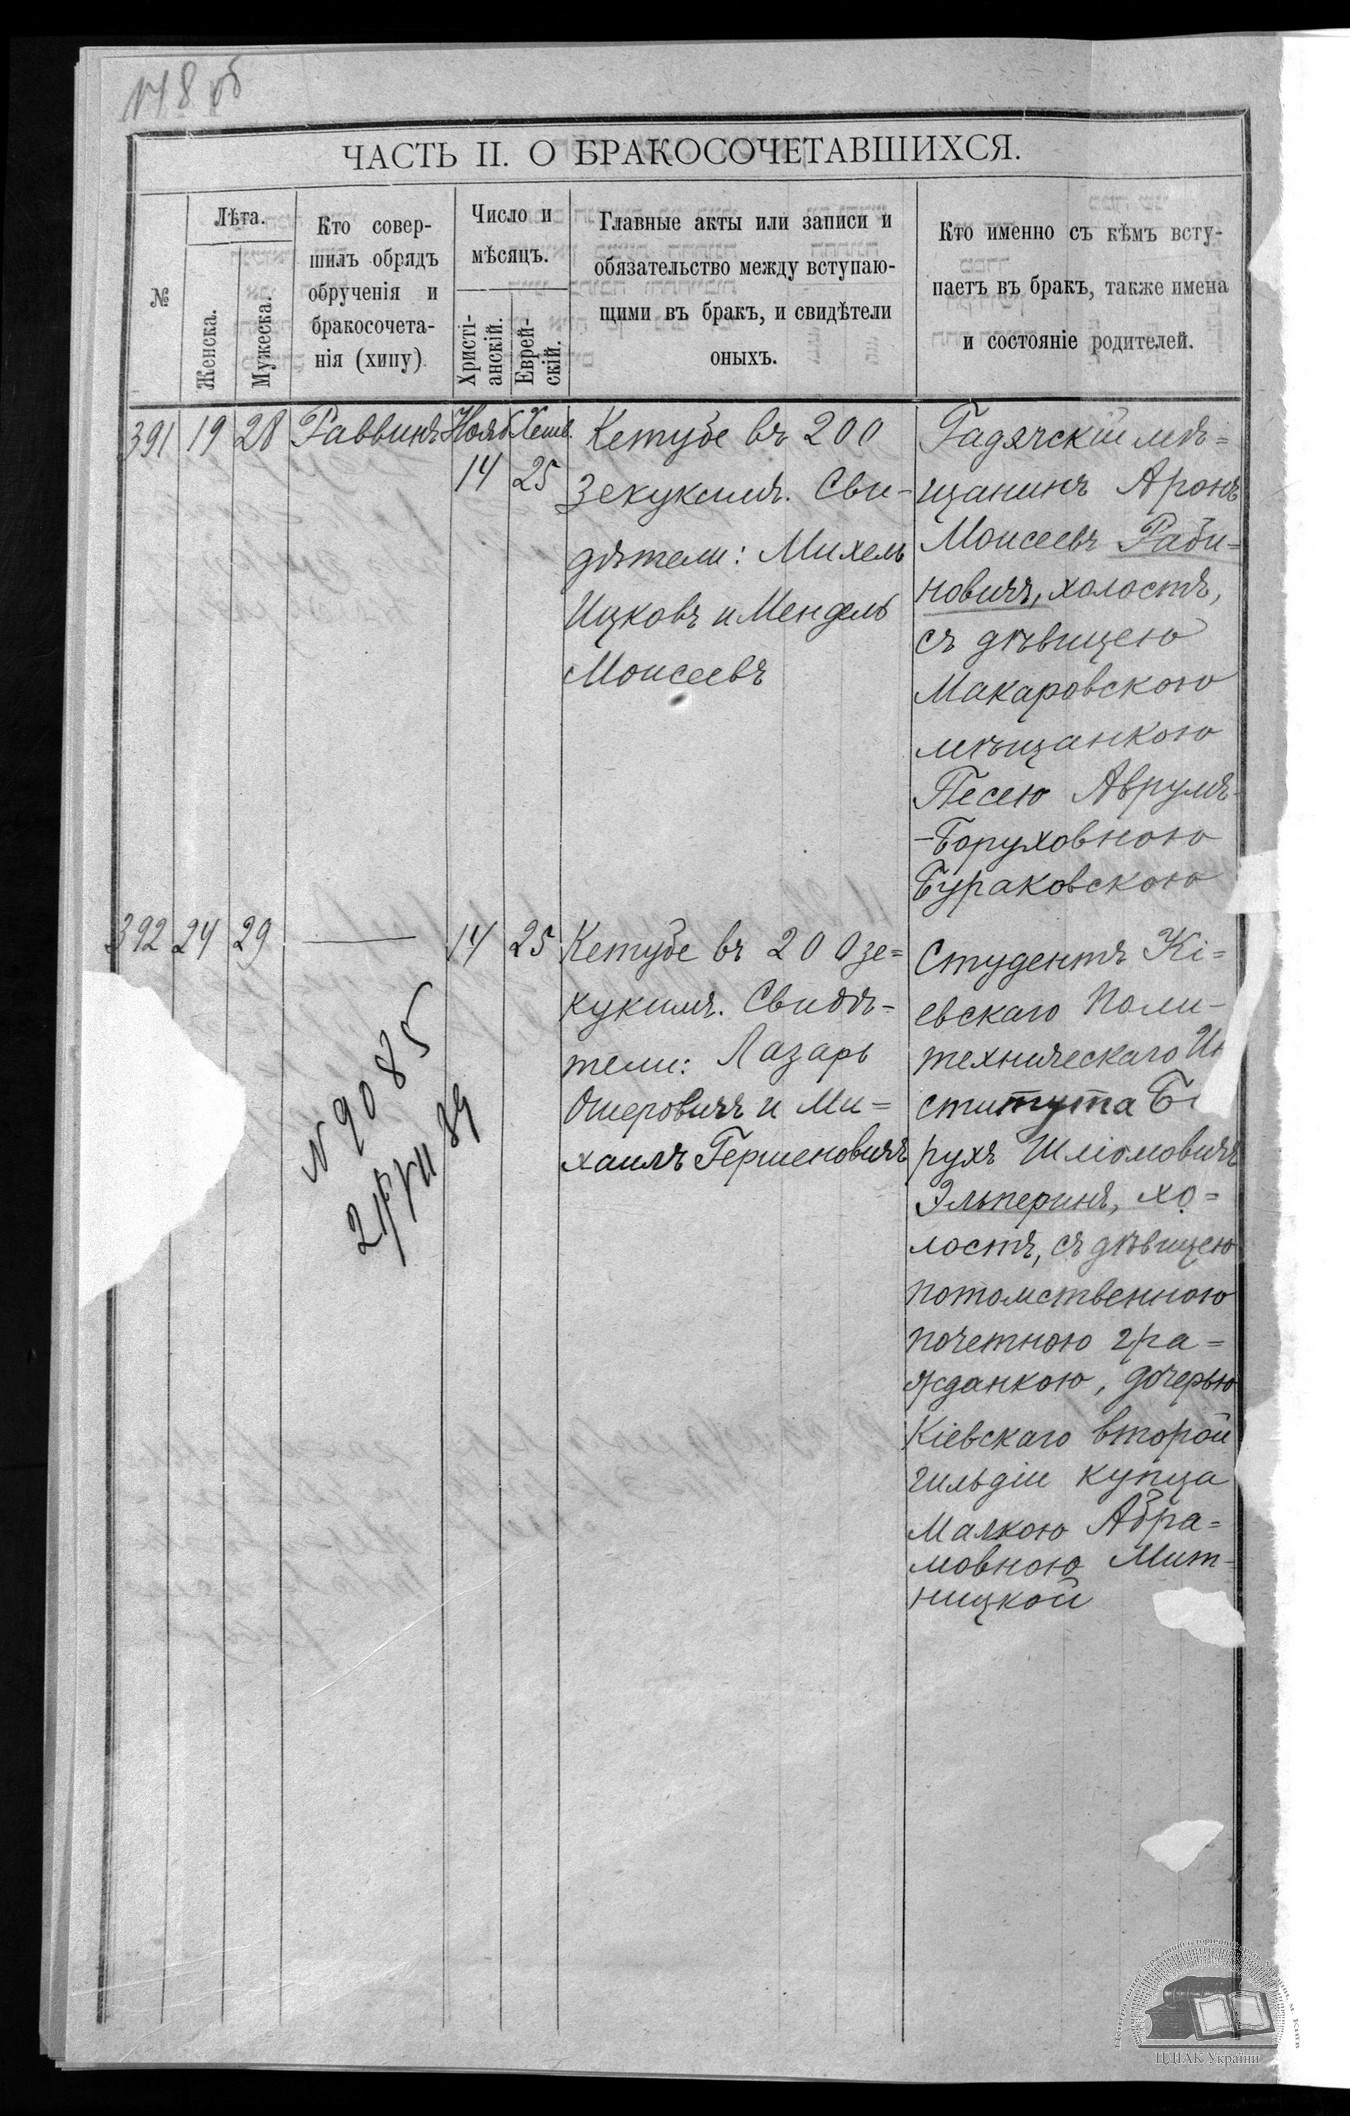 ЧАСТЬ II. О БРАКОСОЧЕТАВШИХСЯ.
№
Лѣта.
Женска.
Мужеска.
Кто совер-
шилъ обрядъ
обрученія и
бракосочета-
нія (хипу)
Число и
мѣсяцъ.
Христі-
анскій.
Еврей-
скій.
Главные акты или записи и
обязательство между вступаю-
щими въ бракъ, и свидѣтели
оныхъ.
Кто именно съ кѣмъ всту-
паетъ въ бракъ, также имена
и состояніе родителей.
391 19 28 Раввинъ Нояб. Хешв.
14 25
Кетубе въ 200
зекукимъ. Сви-
дѣтели: Михель
Ицковъ и Мендель
Моисеевъ
Гадячскій мѣ=
щанинъ Аронъ
Моисеевъ Раби=
новичъ, холостъ,
съ дѣвицею
Макаровскою
мѣщанкою
Песею Аврумъ-
-Боруховною
Бураковскою
392 24 29 — 14 25
Кетубе въ 200 зе=
кукимъ. Свидѣ=
тели: Лазарь
Ошеровичъ и Ми=
хаилъ Гершеновичъ
N 9085
Студентъ Кі=
евскаго Поли-
техническаго Ин
ститута Б
рухъ Шліомовичъ
Эльперинъ, хо=
лостъ, съ дѣвицею
потомственною
почетною гра=
жданкою, дочерью
Кіевскаго второй
гильдіи купца
Малкою Абра=
мовною Мит-
ницкой
ЦДІАК України